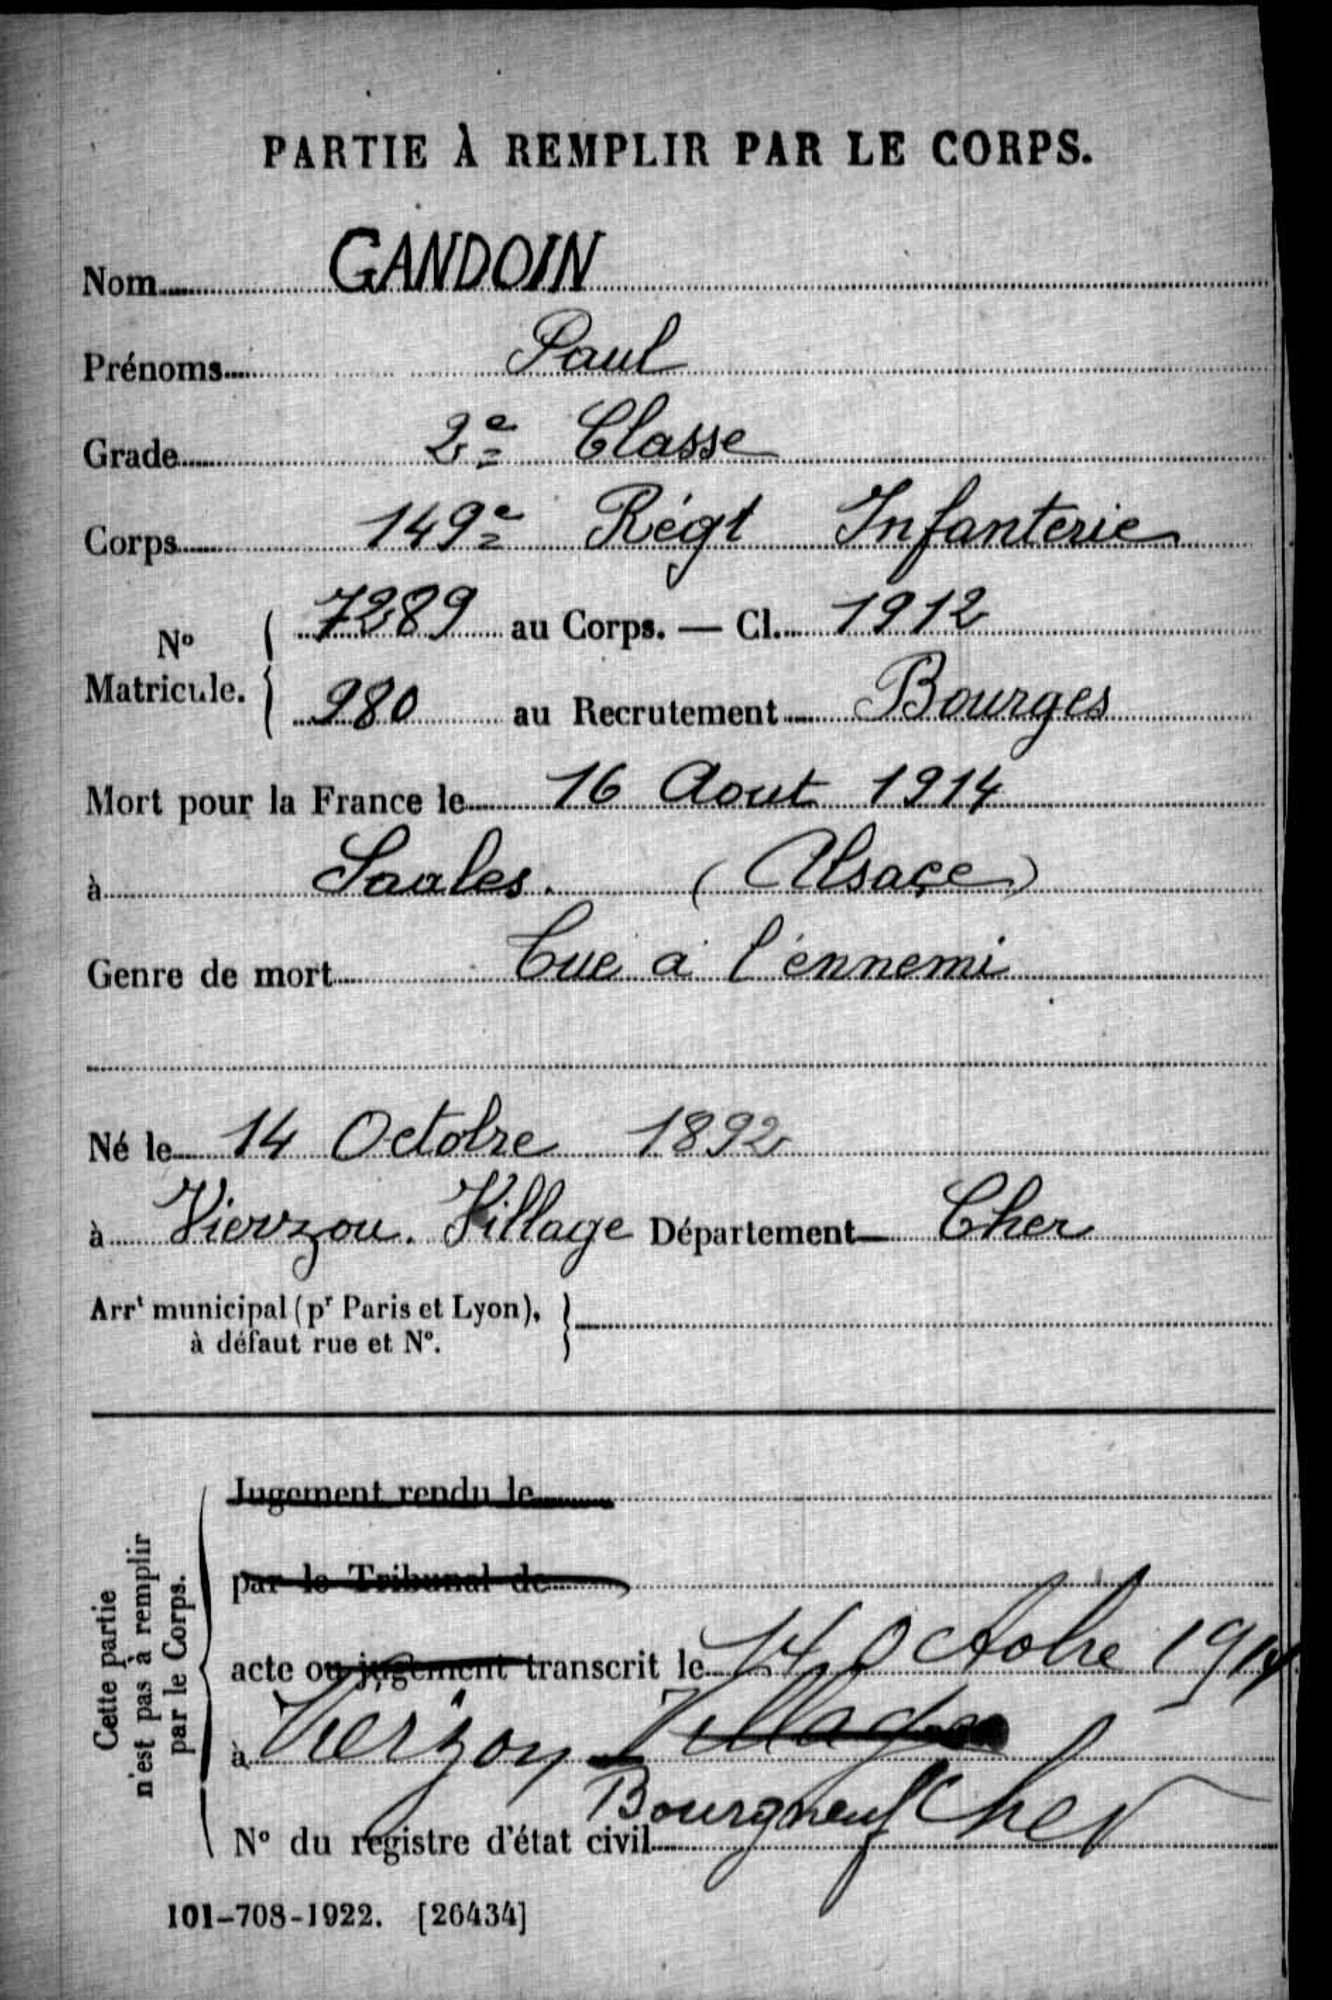 PARTIE À REMPLIR PAR LE CORPS.
Nom GANDOIN
Prénoms Paul
Grade 2e Classe
Corps 149e Régt Infanterie
No Matricule. 7289 au Corps. — Cl. 1912
980 au Recrutement Bourges
Mort pour la France le 16 Aout 1914
à Saales. (Alsace)
Genre de mort Tué à l'ennemi
Né le 14 Octobre 1892
à Vierzon. Village Département Cher
Arrt municipal (pr Paris et Lyon),
à défaut rue et No.
Cette partie
n'est pas à remplir
par le Corps.
Jugement rendu le
par le Tribunal de
acte ou jugement transcrit le 14 Octobre 1914
à Vierzon Village
Bourgneuf Cher
No du registre d'état civil
101-708-1922. [26434]